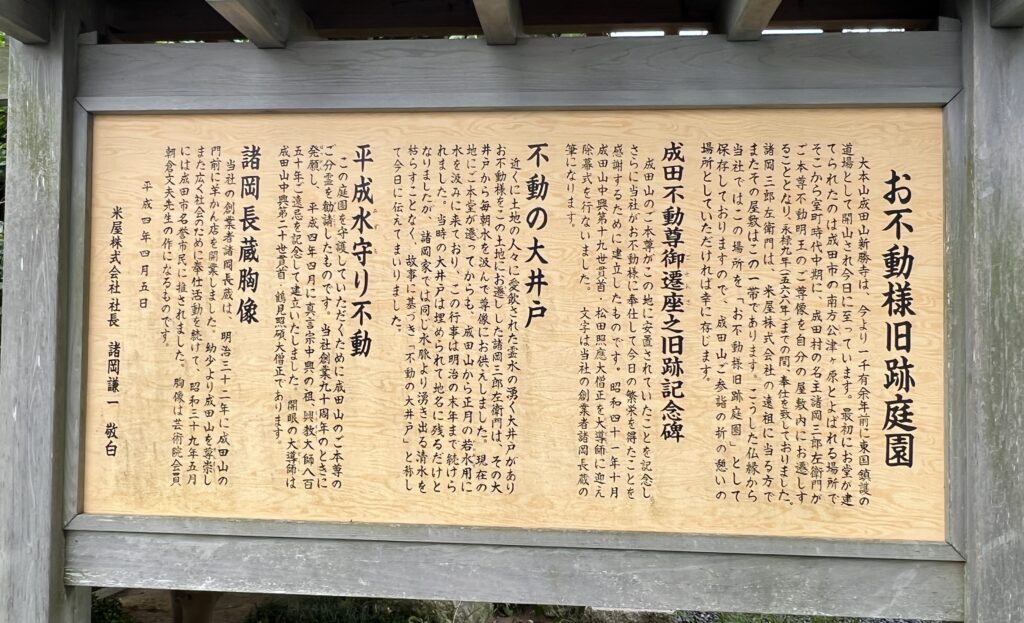 お不動様旧跡庭園
大本山成田山新勝寺は、今より一千有余年前に東国鎮護の
道場として開山され今日に至っています。最初にお堂が建
てられたのは成田市の南方公津ヶ原とよばれる場所で
そこから室町時代中期に、成田村の名主諸岡三郎左衛門が
ご本尊不動明王のご尊像を自分の屋敷内にお遷しす
ることとなり、永禄九年(一五六六年)までの間、奉仕を致しておりました。
諸岡三郎左衛門は、米屋株式会社の遠祖に当る方で
またその屋敷はこの一帯であります。こうした仏縁から
当社ではこの場所を「お不動様旧跡庭園」として
保存しておりますので、成田山ご参詣の折の憩いの
場所としていただければ幸に存じます。
成田不動尊御遷座之旧跡記念碑
成田山のご本尊がこの地に安置されていたことを記念し
さらに当社がお不動様に奉仕して今日の繁栄を得たことを
感謝するために建立したものです。昭和四十一年十月
成田山中興第十九世貫首・松田照應大僧正を大導師に迎え
除幕式を行ないました。文字は当社の創業者諸岡長蔵の
筆になります。
不動の大井戸
近くに土地の人々に愛飲された霊水の湧く大井戸があり
お不動様をこの土地にお遷しした諸岡三郎左衛門は、その大
井戸から毎朝水を汲んで尊像にお供えしました。現在の
地にご本堂が遷ってからも、成田山から正月の若水用に
水を汲みに来ており、この行事は明治の末年まで続けら
れました。当時の大井戸は埋められて地名に残るだけと
なりましたが、諸岡家では同じ水脈より湧き出る清水を
枯らすことなく、故事に基づき「不動の大井戸」と称し
て今日に伝えてまいりました。
平成水守り不動
この庭園を守護していただくために成田山のご本尊の
ご分霊を勧請したものです。当社創業九十周年のときに
発願し、平成四年四月に真言宗中興の祖、興教大師八百
五十年ご遠忌を記念して建立いたしました。開眼の大導師は
成田山中興第二十世貫首・鶴見照碩大僧正であります。
諸岡長蔵胸像
当社の創業者諸岡長蔵は、明治三十二年に成田山の
門前に羊かん店を開業しました。幼少より成田山を尊崇し
また広く社会のために奉仕活動を続けて、昭和三十九年五月
には成田市名誉市民に推されました。胸像は芸術院会員
朝倉文夫先生の作になるものです。
平成四年四月五日
米屋株式会社社長 諸岡謙一 敬白